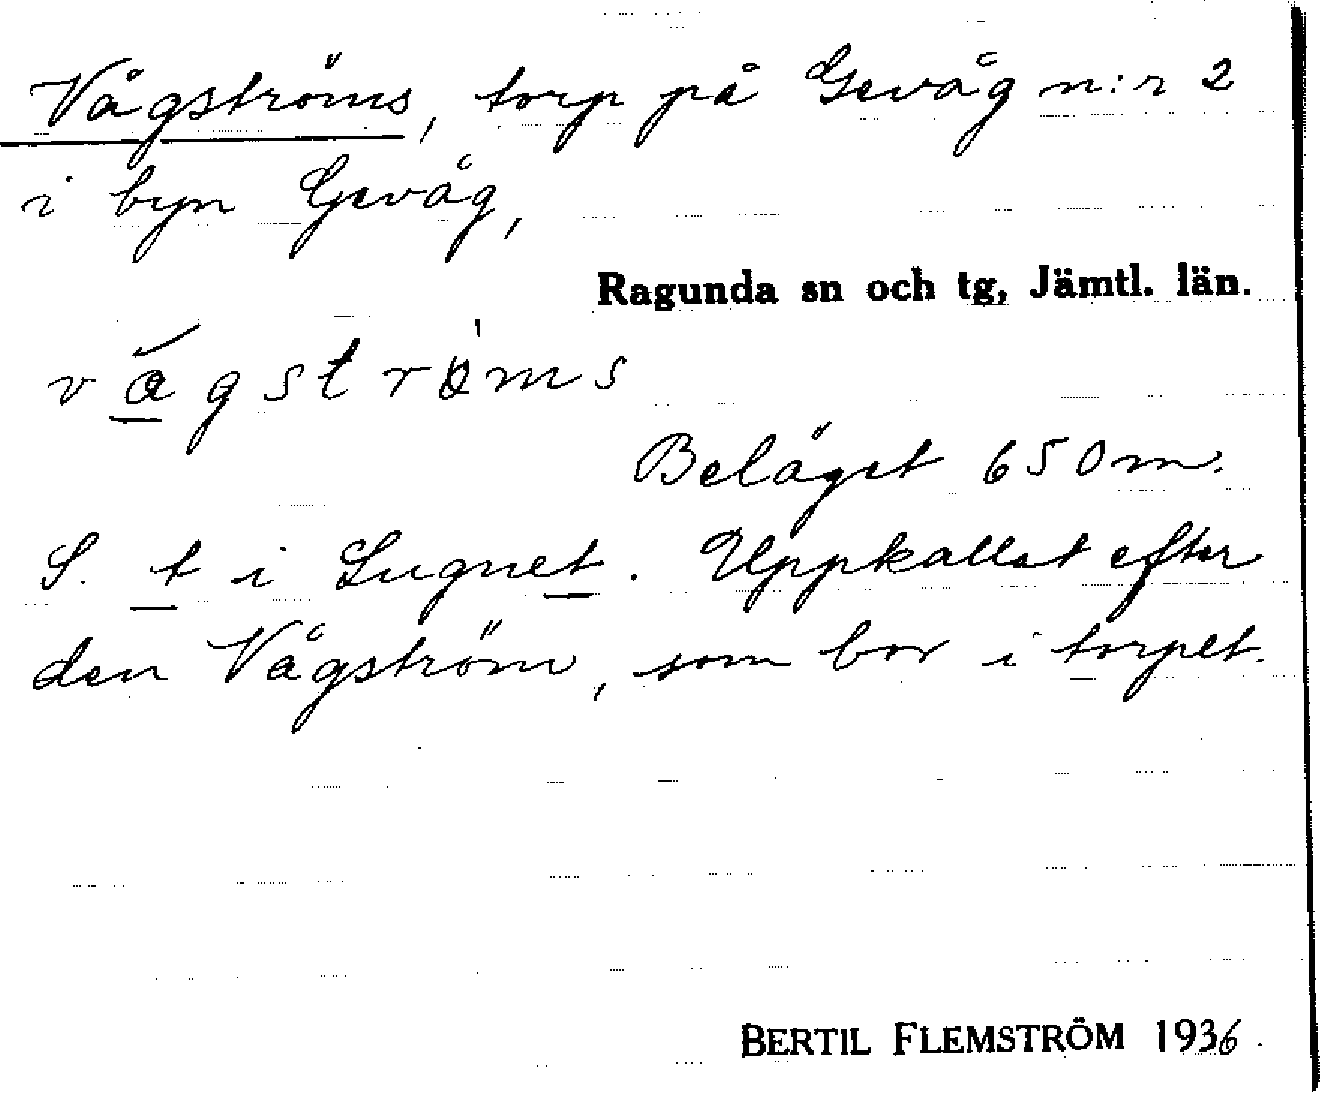 Vågströms, torp på Gevåg n:r 2
i byn Gevåg,
Ragunda sn och tg, Jämtl. län.
vågströms
Beläget 650 m.
S. t i Lugnet. Uppkallat efter
den Vågström, som bor i torpet.
BERTIL FLEMSTRÖM 1936.